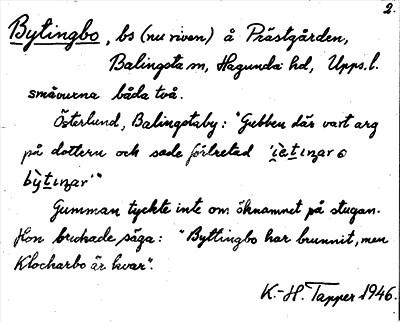 2.
Bytingbo, bs (nu riven) å Prästgården,
Balingsta sn, Hagunda hd, Upps. l.
småvuxna båda två.
Österlund, Balingstaby: "Gubben där vart arg
på dottern och sade förlretad
Gumman tyckte inte om öknamnet på stugan.
Hon brukade säga: "Byttingbo har brunnit, men
Klockarbo är kvar".
K.-H. Tapper 1946.